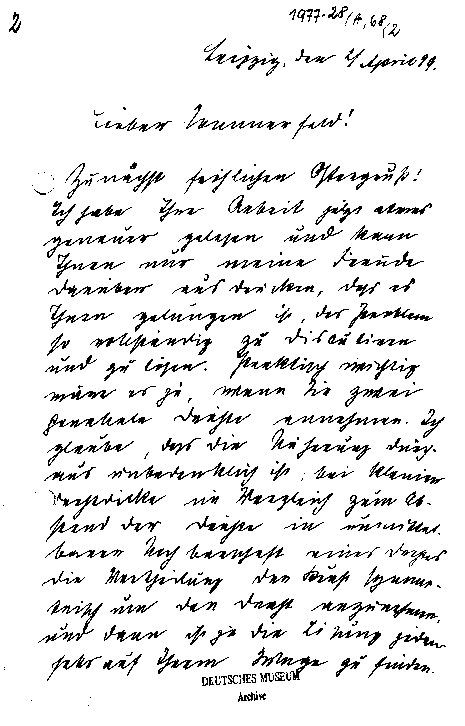 2
1977-28/A,68/2
Leipzig, den 2/ April 99.
Lieber Sommerfeld!
Zunächst fröhlichen Ostergruß!
Ich habe Ihre Arbeit jetzt etwas
genauer gelesen und kann
Ihnen nur meine Freude
darüber ausdrücken, daß es
Ihnen gelungen ist, das Problem
so vollständig zu discutiren
und zu lösen. Praktisch wichtig
wäre es ja, wenn Sie zwei
parallele Drähte annehmen. Ich
glaube, daß die Näherung durch-
aus unbedenklich ist, bei kleiner
Drahtdicke im Vergleich zum Ab-
stand der Drähte in unmittel-
barer Nachbarschaft eines Drahtes
die Vertheilung der Kraft symme-
trisch um den Draht anzunehmen,
und dann ist ja die Lösung jeden-
falls auf Ihrem Wege zu finden.
DEUTSCHES MUSEUM
Archive